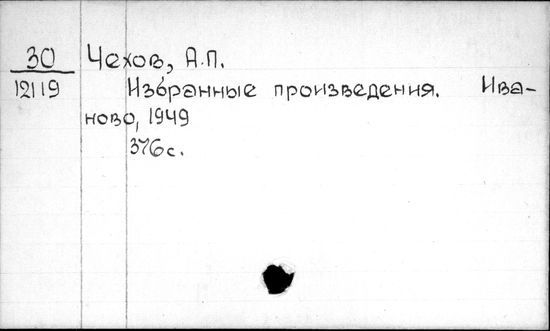 30 Чехов, А.П.
12119 Избранные произведения. Ива-
ново, 1949
376с.